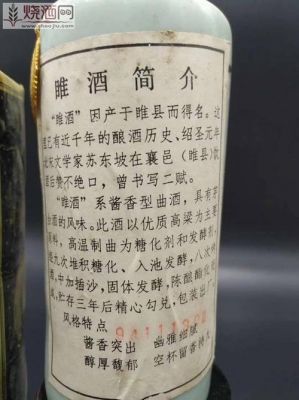 烧酒网
睢酒简介
“睢酒”因产于睢县而得名。这
已有近千年的酿酒历史、绍圣元年
宋文学家苏东坡在襄邑（睢县）饮
酒后赞不绝口，曾书写二赋。
“睢酒”系酱香型曲酒，具有茅
台酒的风味。此酒以优质高粱为主要
料，高温制曲为糖化剂和发酵剂，
九次堆积糖化、入池发酵，八次
中加插沙，固体发酵，陈酿酯化
贮存三年后精心勾兑，包装出厂
风格特点
酱香突出 幽雅细腻
醇厚馥郁 空杯留香持